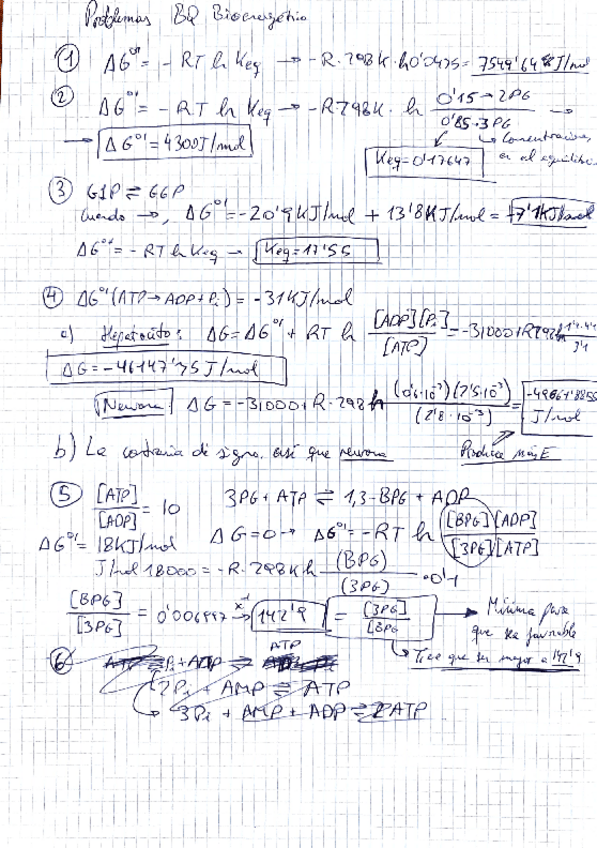 Problemas BQ Bioenergética
① ΔG°' = - RT ln Keq → -R·298K·ln 0'0475 = 7549'64 J/mol
② ΔG°' = - RT ln Keq → -R·298K · ln 0'15→2PG / 0'85→3PG →
→ ΔG°' = 4300 J/mol
Keq=0'17647
Concentraciones en el equilibrio
③ G1P ⇌ G6P
→, ΔG°' = -20'9 KJ/mol + 13'8 KJ/mol = -7'1 KJ/mol
ΔG°' = - RT ln Keq → Keq = 17'55
④ ΔG°'(ATP → ADP + Pi) = -31 KJ/mol
a) Hepatocito: ΔG = ΔG°' + RT ln [ADP][Pi] / [ATP] = -31000 + R298
ΔG = -46147'35 J/mol
Neurona ΔG = -31000 + R·298 ln (0'6·10⁻³)(2'5·10⁻³) / (2'8·10⁻³) = J/mol
Produce más E
b) La contraria de signo, así que neurona
⑤ [ATP] / [ADP] = 10 3PG + ATP ⇌ 1,3-BPG + ADP
ΔG°' = 18KJ/mol ΔG = 0 → ΔG°' = - RT ln [BPG][ADP] / [3PG][ATP]
J/mol 18000 = -R·298K ln (BPG) / (3PG) · 0'1
[BPG] / [3PG] = 0'006997 x⁻¹→ 142'9 = [3PG] / [BPG → Mínima para
que sea favorable
Tiene que ser mayor a 142'9
⑥ Pi + ADP ⇌ ATP
2Pi + AMP ⇌ ATP
3Pi + AMP + ADP ⇌ 2ATP